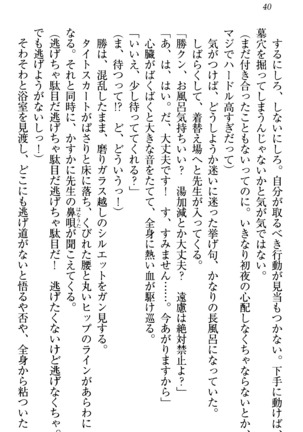 40
にしろ、どうにもこうにも落ち着かない。自分が取るべき行動が見えない。下手に動けば、
墓穴を掘ってしまうんじゃないかと気が気ではない。
(まだ付き合ったこともないってのに。いきなり初夜の心配しなくちゃならないとか、
マジでハードル高すぎだって)
気がつけば、どうしようか迷いに迷った挙げ句、かなりの長風呂になっていた。
しばらくして、着替え場へと先生が入ってくる。
「勝クン、お風呂気持ちいい? 湯加減とか大丈夫? 遠慮は絶対禁止よ?」
「あ、はい。だ、大丈夫です! す、すみません……。今あがりますから」
心臓がばくばくと大きな音をたてて、全身に熱い血が駆け巡る。
「いいえ、少し待っててくれる?」
(ま、待つって!? ど、どういうっ!)
勝は、混乱したまま、磨りガラス越しのシルエットをガン見する。
タイトスカートがばさりと床に落ち、くびれた腰と丸いヒップのラインがあらわに
なる。それと同時に、かすかに先生の鼻唄が聞こえてくる。
はなうた
(逃げちゃ駄目だ逃げちゃ駄目だ! 逃げたくないけど逃げなくちゃ。
でも逃げようがないしっ!)
そわそわと浴室を見渡し、どこにも逃げ道がないと悟るや否や、全身から粘ついた